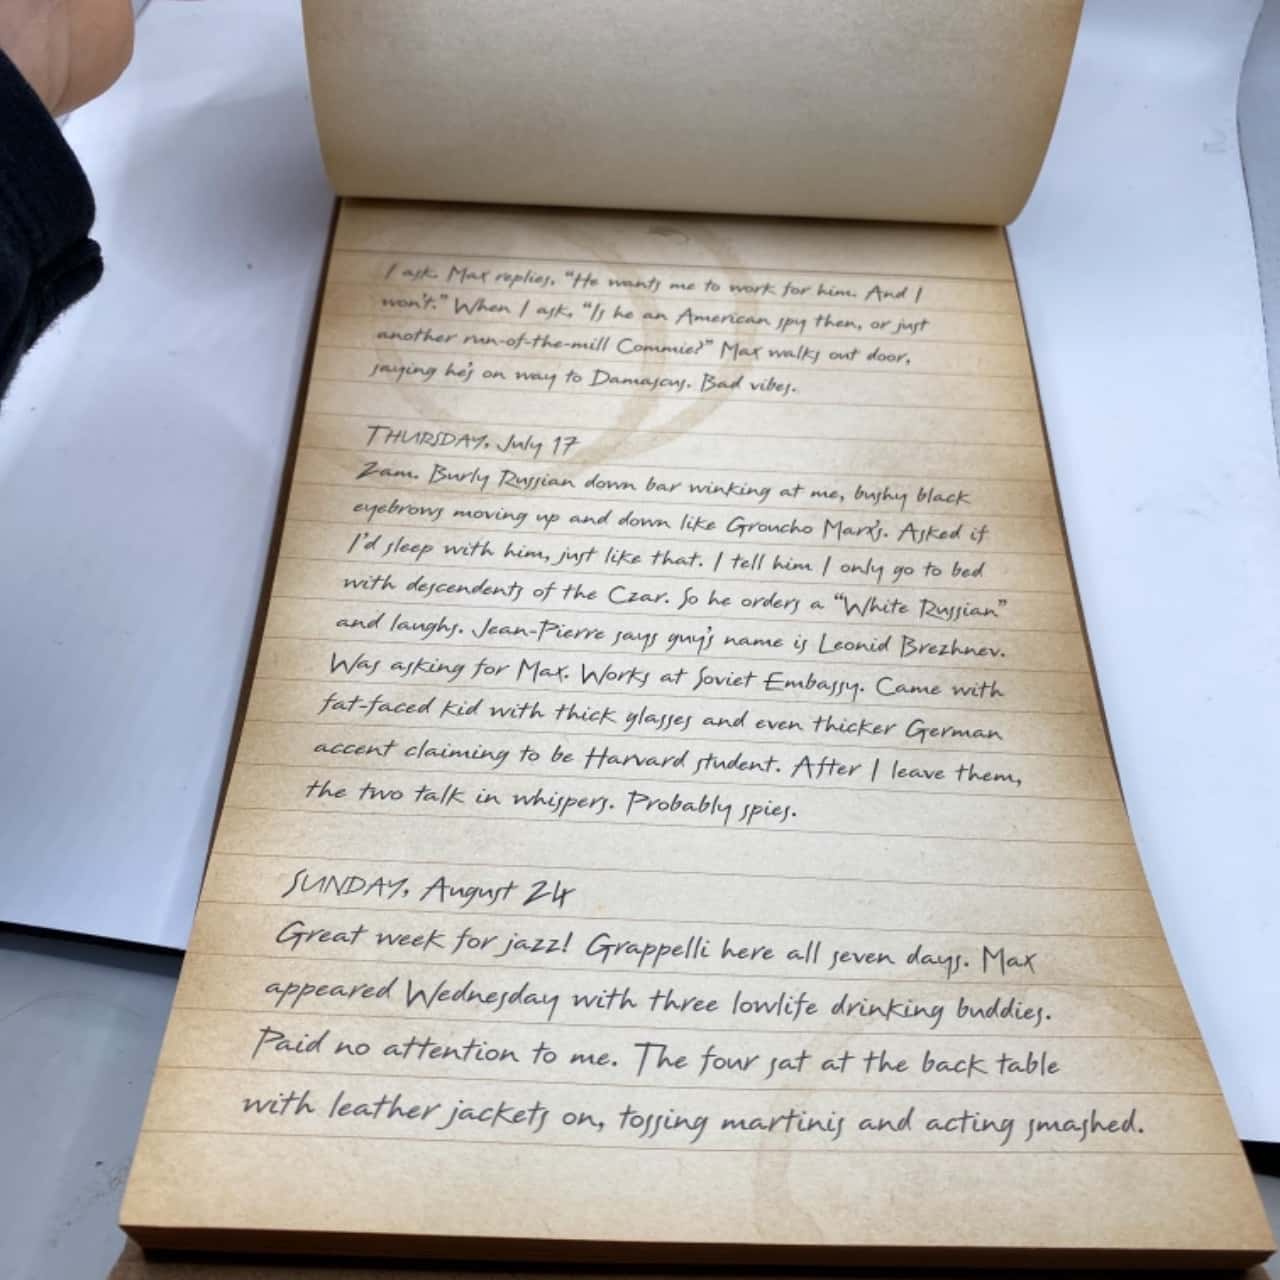 I ask. Max replies, "He wants me to work for him. And I
won't." When I ask, "Is he an American spy then, or just
another run-of-the-mill Commie?" Max walks out door,
saying he's on way to Damascus. Bad vibes.
THURSDAY, July 17
Zam. Burly Russian down bar winking at me, bushy black
eyebrows moving up and down like Groucho Marx's. Asked if
I'd sleep with him, just like that. I tell him I only go to bed
with descendents of the Czar. So he orders a "White Russian"
and laughs. Jean-Pierre says guy's name is Leonid Brezhnev.
Was asking for Max. Works at Soviet Embassy. Came with
fat-faced kid with thick glasses and even thicker German
accent claiming to be Harvard student. After I leave them,
the two talk in whispers. Probably spies.
SUNDAY, August 24
Great week for jazz! Grappelli here all seven days. Max
appeared Wednesday with three lowlife drinking buddies.
Paid no attention to me. The four sat at the back table
with leather jackets on, tossing martinis and acting smashed.